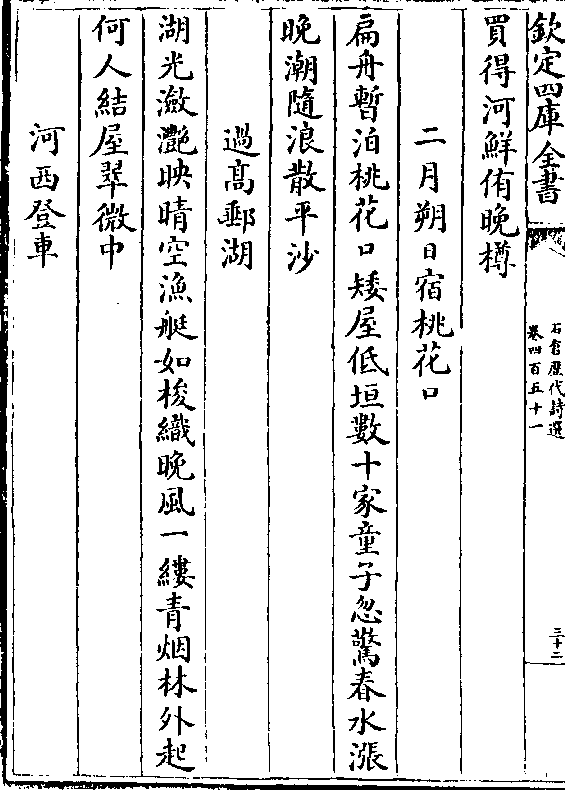 欽定四庫全書
石倉歷代詩選
卷四百五十一
三十二
買得河鮮侑晚樽
二月朔日宿桃花口
扁舟暫泊桃花口矮屋低垣數十家童子忽驚春水漲
晚潮隨浪散平沙
過高郵湖
湖光瀲灧映晴空漁艇如梭織晚風一縷青烟林外起
何人結屋翠微中
河西登車